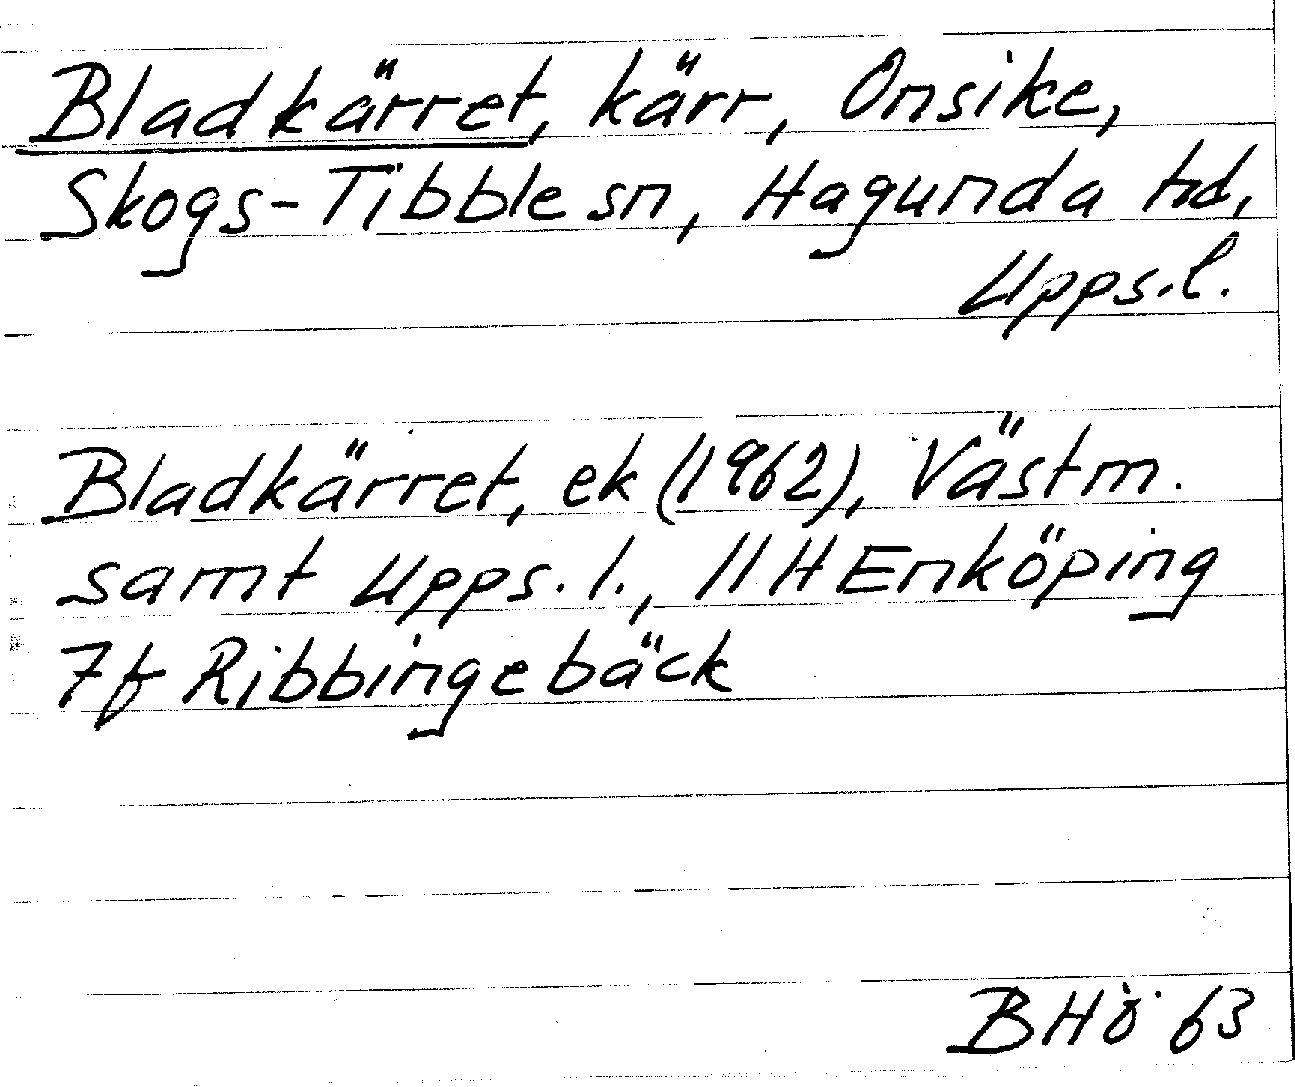 Bladkärret, kärr, Onsike,
Skogs-Tibble sn, Hagunda hd,
Upps.l.
Bladkärret, ek (1962), Västm.
samt Upps.l., 11 H Enköping
7f Ribbingebäck
BHö 63